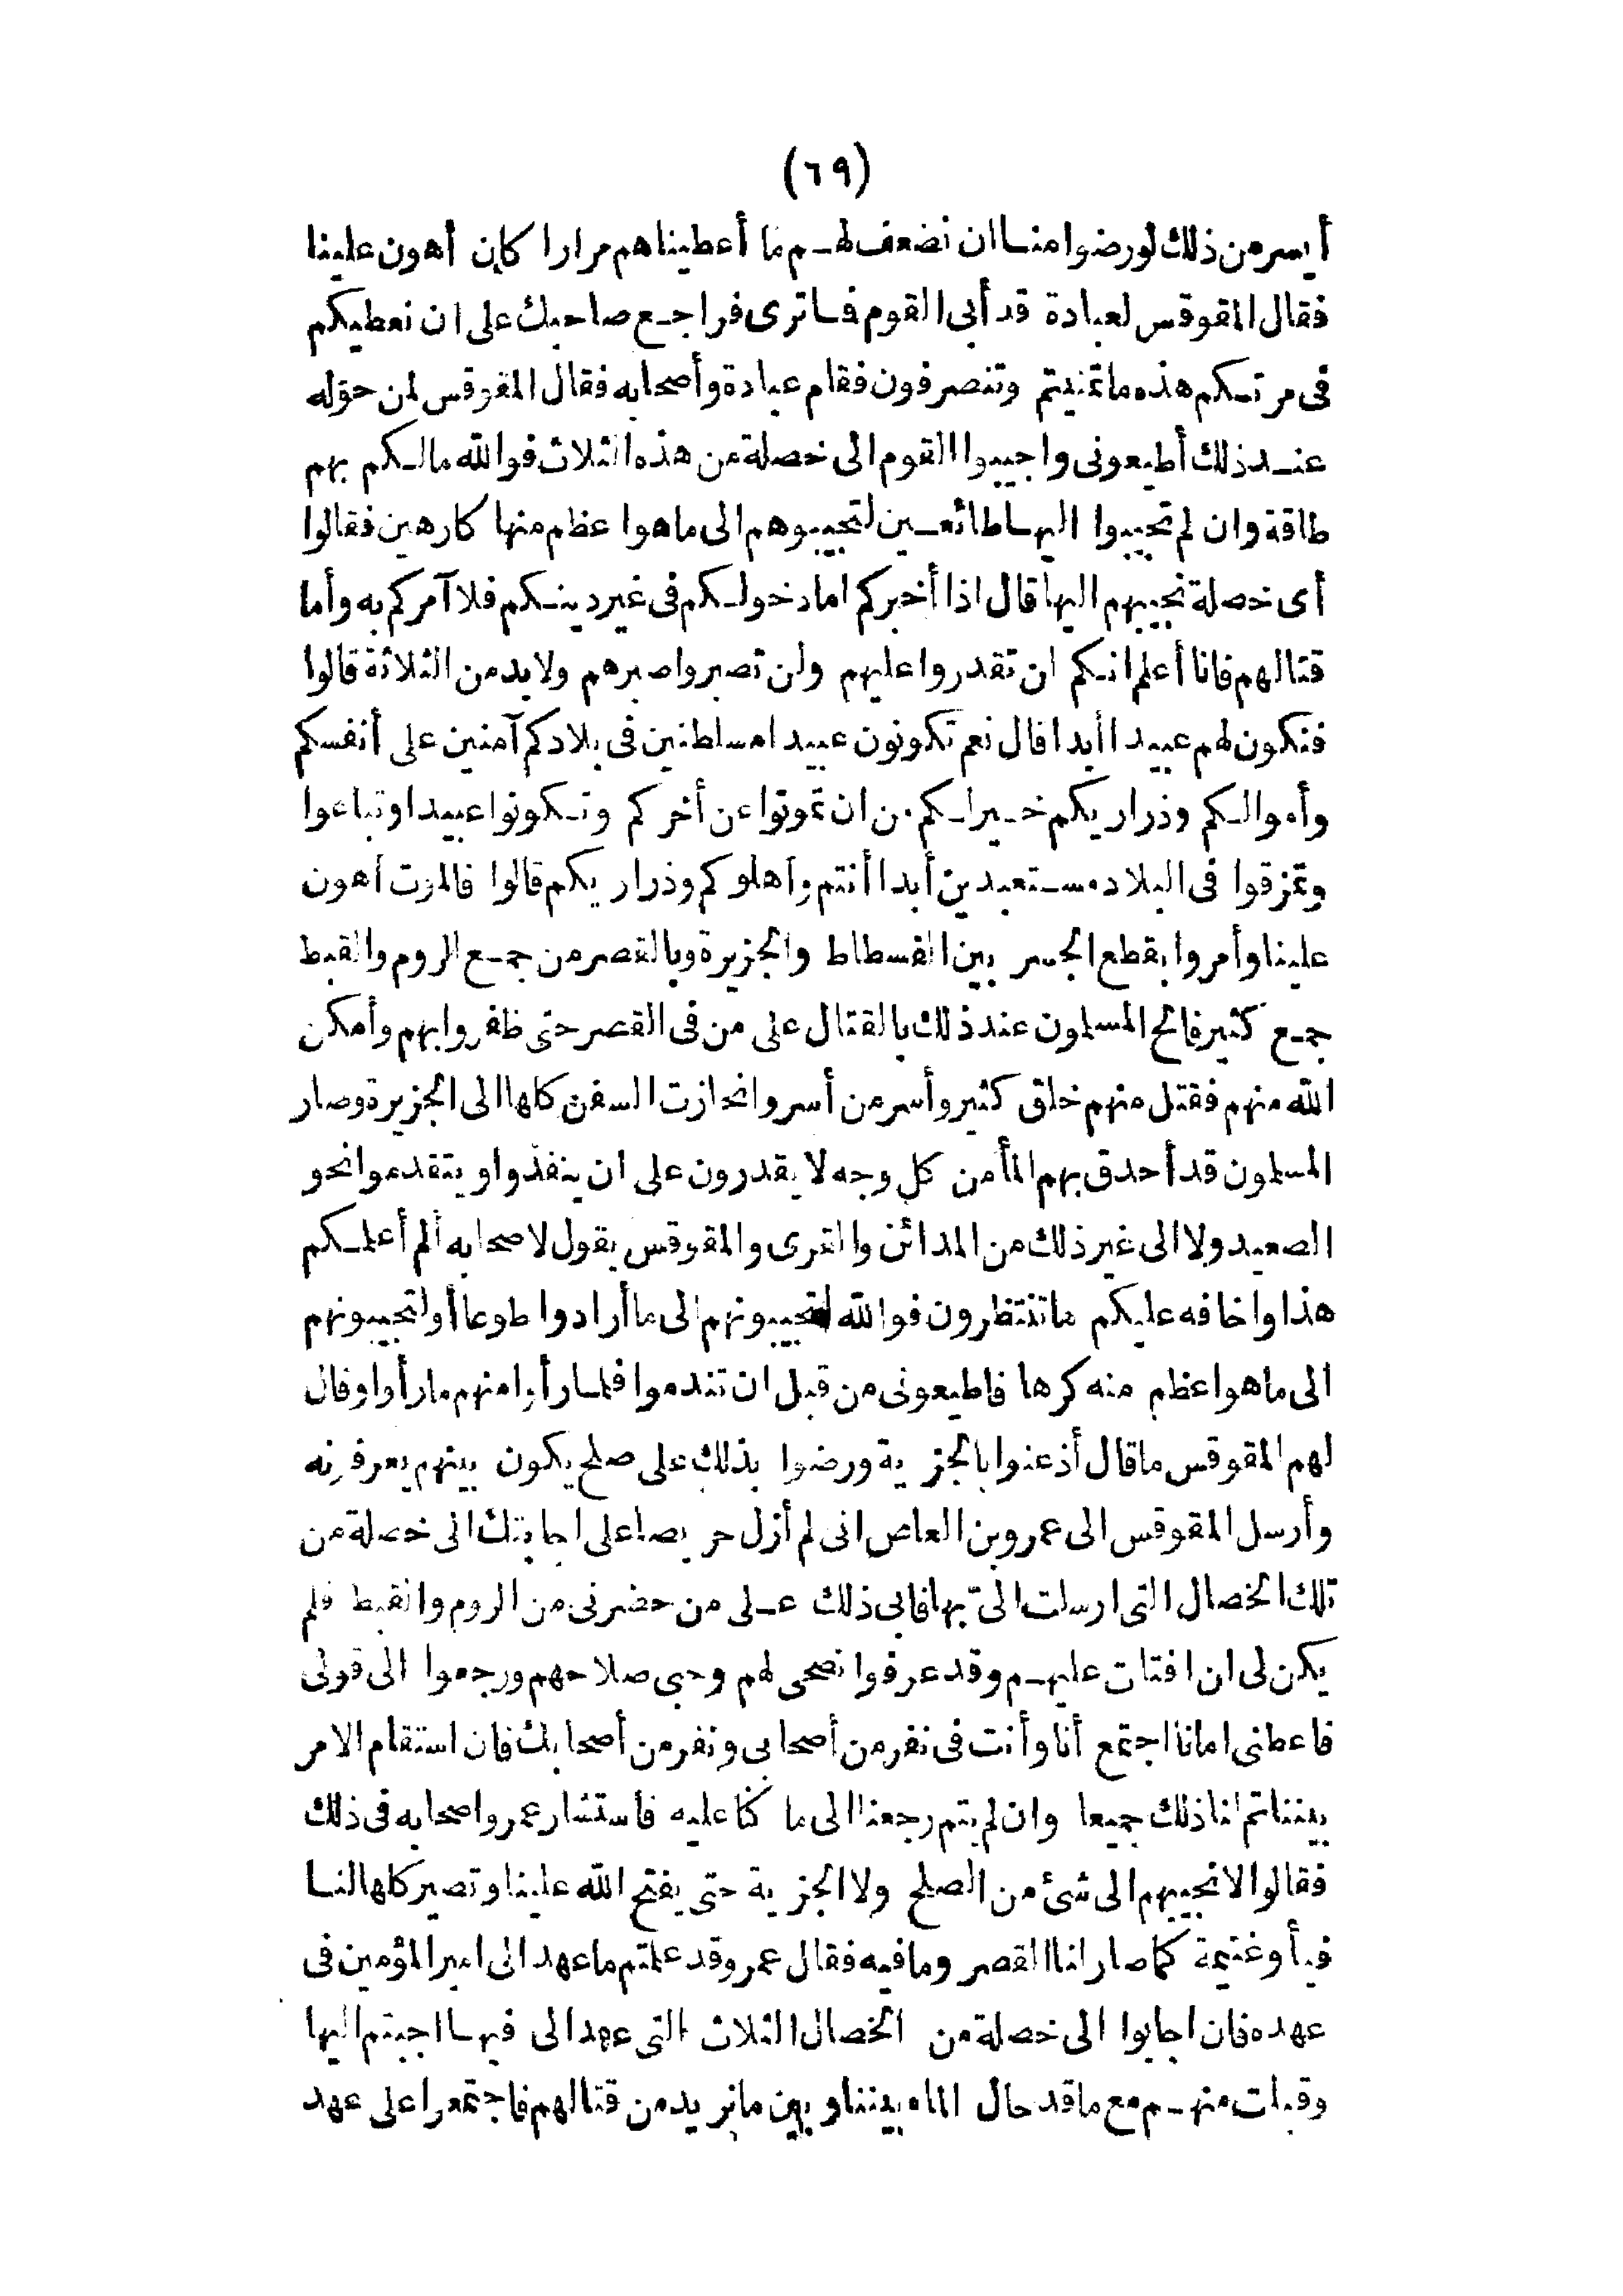 (٦٩)
أيسر من ذلك لو رضوا منا ان نضعف لهم ما أعطيناهم مرارا كان أهون علينا
فقال المقوقس لعبادة قد أبى القوم فما ترى فراجع صاحبك على ان نعطيكم
فى مرتكم هذه ما تمنيتم وتنصرفون فقام عبادة وأصحابه فقال المقوقس لمن حوله
عند ذلك أطيعونى واجيبوا القوم الى خصلة من هذه الثلاث فوالله مالكم بهم
طاقة وان لم تجيبوا اليها طائعين لتجيبوهم الى ما هوا عظم منها كارهين فقالوا
أى خصلة نجيبهم اليها قال اذا أخبركم اما دخولكم فى غير دينكم فلا آمركم به وأما
قتالهم فانا أعلم انكم ان تقدروا عليهم ولن تصبروا صبرهم ولا بد من الثلاثة قالوا
فنكون لهم عبيدا أبدا قال نعم تكونون عبيدا مسلطنين فى بلادكم آمنين على أنفسكم
وأموالكم وذراريكم خير لكم من ان تموتوا عن أخركم وتكونوا عبيدا وتباعوا
وتمزقوا فى البلاد مستعبدين أبدا أنتم وأهلوكم وذراريكم قالوا فالموت أهون
علينا وأمروا بقطع الجسر بين الفسطاط والجزيرة وبالقصر من جمع الروم والقبط
جمع كثير فالح المسلمون عند ذلك بالقتال على من فى القصر حتى ظفروا بهم وأمكن
الله منهم فقتل منهم خلق كثير وأسر من أسر وانحازت السفن كلها الى الجزيرة وصار
المسلمون قد أحدق بهم المأ من كل وجه لا يقدرون على ان ينفذوا و يتقدموا نحو
الصعيد ولا الى غير ذلك من المدائن والقرى والمقوقس يقول لاصحابه ألم أعلمكم
هذا واخافه عليكم ما تنتظرون فوالله لتجيبونهم الى ما أرادوا طوعا أو لتجيبونهم
الى ما هوا عظم منه كرها فاطيعونى من قبل ان تندموا فلما رأوا منهم ما رأوا وقال
لهم المقوقس ما قال أذعنوا بالجزية ورضوا بذلك على صلح يكون بينهم يعرفونه
وأرسل المقوقس الى عمرو بن العاص انى لم أزل حريصا على اجابتك الى خصلة من
تلك الخصال التى ارسلت الىّ بها فابى ذلك على من حضرنى من الروم والقبط فلم
يكن لى ان افتات عليهم وقد عرفوا نصحى لهم وحبى صلاحهم ورجعوا الى قولى
فاعطنى امانا اجتمع أنا وأنت فى نفر من أصحابى ونفر من أصحابك فان استقام الامر
بيننا تم لنا ذلك جميعا وان لم يتم رجعنا الى ما كنا عليه فاستشار عمرو اصحابه فى ذلك
فقالوا لا نجيبهم الى شئ من الصلح ولا الجزية حتى يفتح الله علينا وتصير كلها لنا
فيأ وغنيمة كما صار لنا القصر وما فيه فقال عمرو قد علمتم ما عهد الى امير المؤمين فى
عهده فان اجابوا الى خصلة من الخصال الثلاث التى عهد الى فيها اجبتم اليها
وقبلت منهم مع ما قد حال الماء بيننا وبين ما نريد من قتالهم فاجتمعوا على عهد